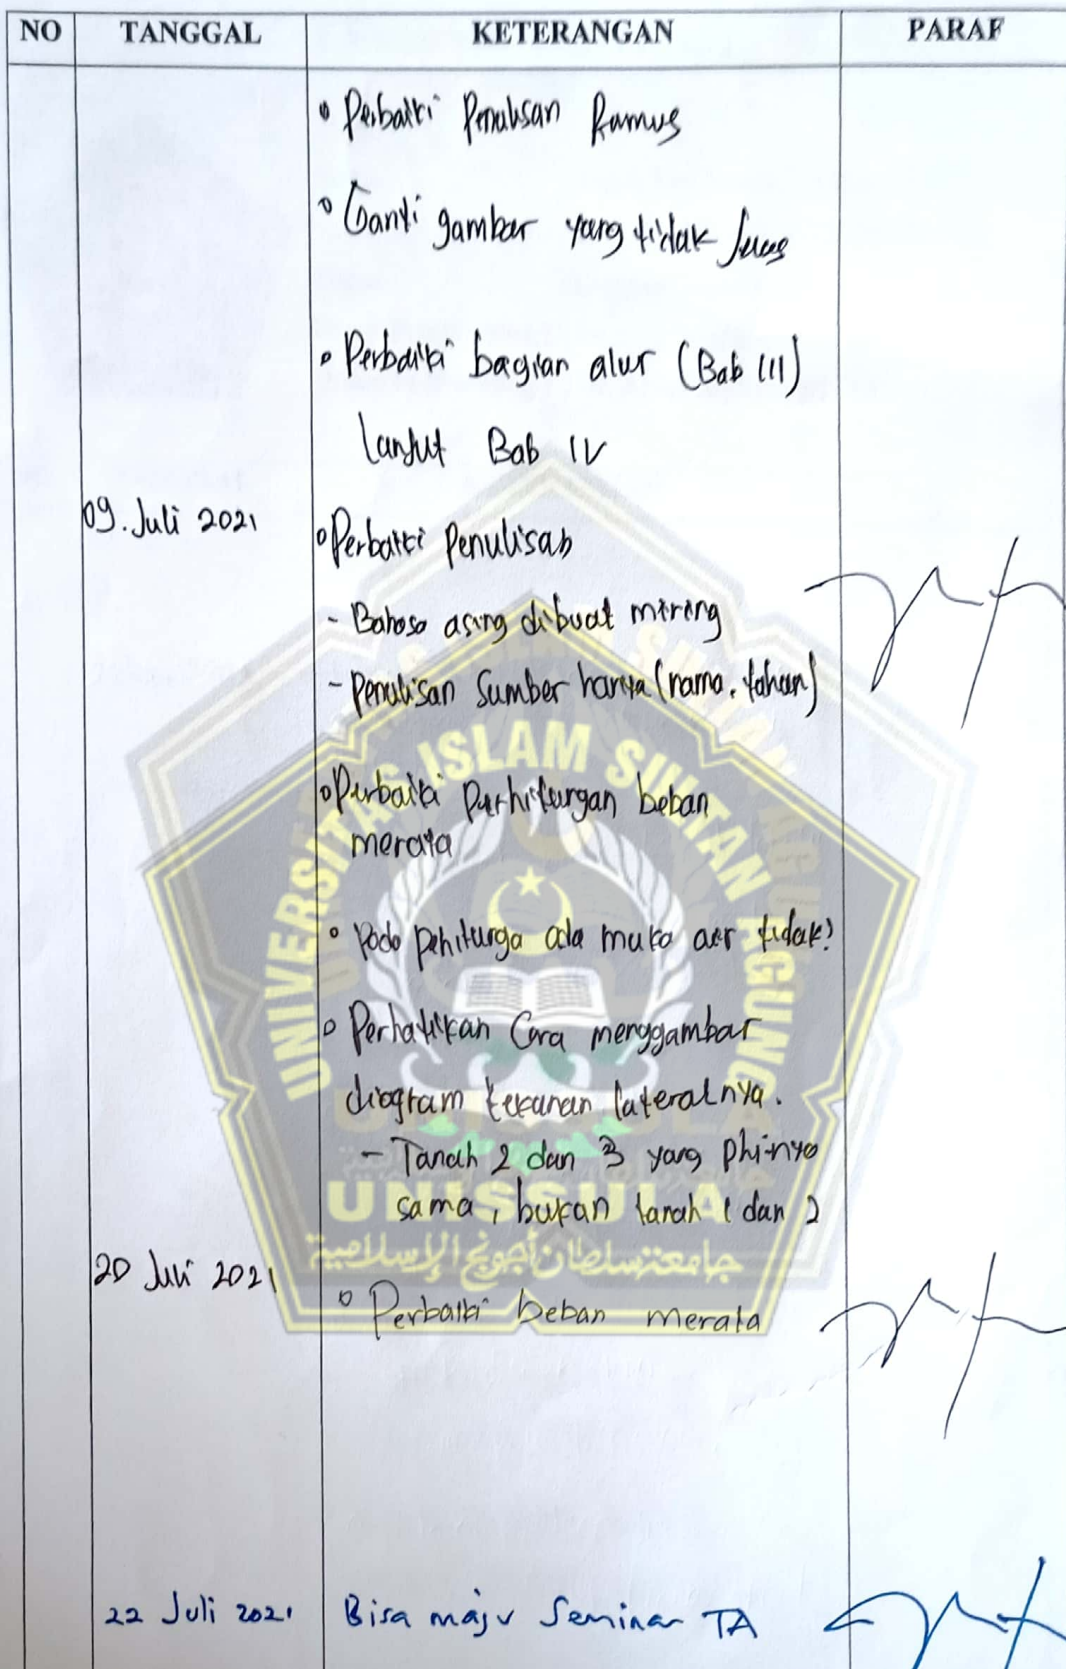 NO TANGGAL KETERANGAN PARAF
• Perbaiki Penulisan Rumus
• Ganti gambar yang tidak jelas
• Perbaiki bagian alur (Bab III)
Lanjut Bab IV
09 Juli 2021
• Perbaiki Penulisan
- Bahasa asing dibuat miring
- Penulisan Sumber hanya (nama, tahun)
• Perbaiki Perhitungan beban
merata
• Pada pehitunga ada muka air tidak?
• Perhatikan Cara menggambar
diagram tekanan lateralnya.
- Tanah 2 dan 3 yang phi-nya
sama, bukan tanah 1 dan 2
20 Juli 2021
• Perbaiki beban merata
22 Juli 2021 Bisa maju Seminar TA
UNIVERSITAS ISLAM SULTAN AGUNG
UNISSULA
جامعة سلطان أجونج الإسلامية